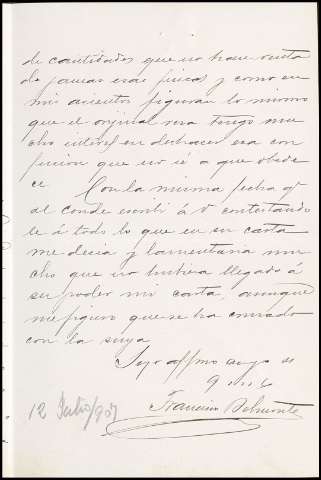 de cantidades que no hace
de piezas esas fincas y como en
mis asientos figuran lo mismo
que el original no tengo mu
cho interés en deshacer esa con
fusion que no sé a que obede
ce. Con la misma fecha qe
al conde escribí á V contestando
le á todo lo que en su carta
me decia y lamentaria mu
cho que no hubiera llegado á
su poder mi carta, aunque
me figuro que se ha cruzado
con la suya
Suyo affmo amigo
Francisco Belmonte
12 Julio/907